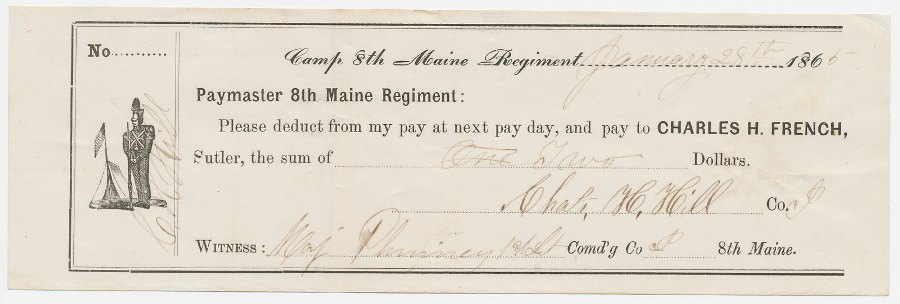 No.
Camp 8th Maine Regiment, January 28th 1865
Paymaster 8th Maine Regiment:
Please deduct from my pay at next pay day, and pay to CHARLES H. FRENCH,
Sutler, the sum of One Two Dollars.
Chas, H, Hill Co. I
WITNESS: Maj Phinney 1st Lt Comd'g Co I 8th Maine.
C H Hill